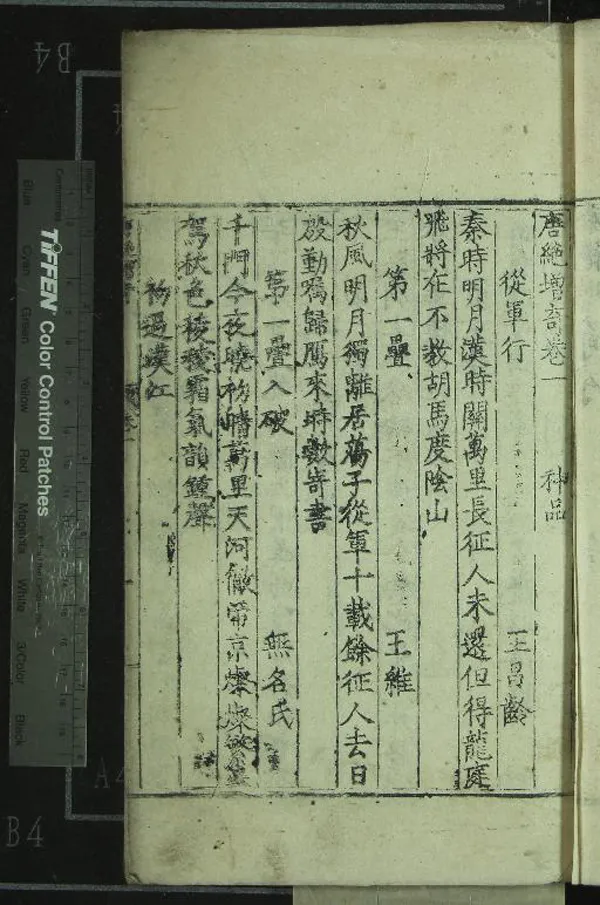 唐絕增奇卷一 神品
從軍行 王昌齡
秦時明月漢時關萬里長征人未還但得龍庭
飛將在不教胡馬度陰山
第一疊 王維
秋風明月獨離居蕩子從軍十載餘征人去日
殷勤囑歸鴈來時數寄書
第一疊入破 無名氏
千門今夜曉初晴萬里天河徹帝京燦燦繁星
駕秋色稜稜霜氣韻鍾聲
初過漢江
TIFFEN Color Control Patches
Blue Cyan Green Yellow Red Magenta White 3/Color Black
B4
B4
A4